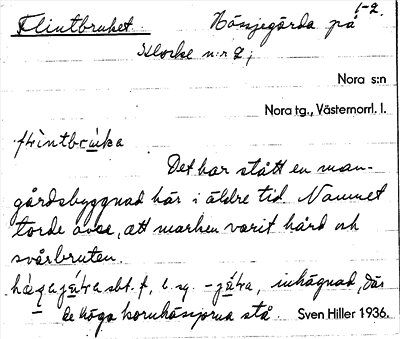 Flintbruket. Hässjegärda på 1-2
Klocke n:r 2;
Nora s:n
Nora tg., Västernorrl. l.
flìntbrúka
Det har stått en man-
gårdsbyggnad här i äldre tid. Namnet
torde avse, att marken varit hård och
svårbruten.
sbt. f, b. sg. inhägnad, där
de höga kornhässjorna stå Sven Hiller 1936.